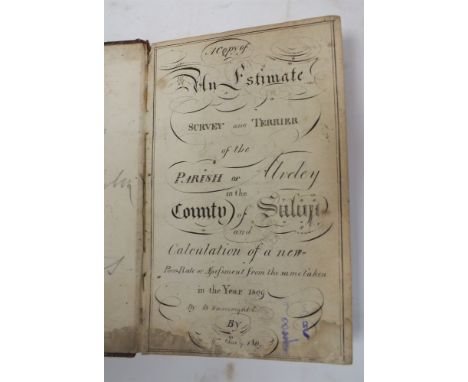 A Copy of
An Estimate
SURVEY and TERRIER
of the
PARISH of
in the
County of
and
Calculation of a new
Poor Rate or Assessment from the same taken
in the Year 1809
By
BY